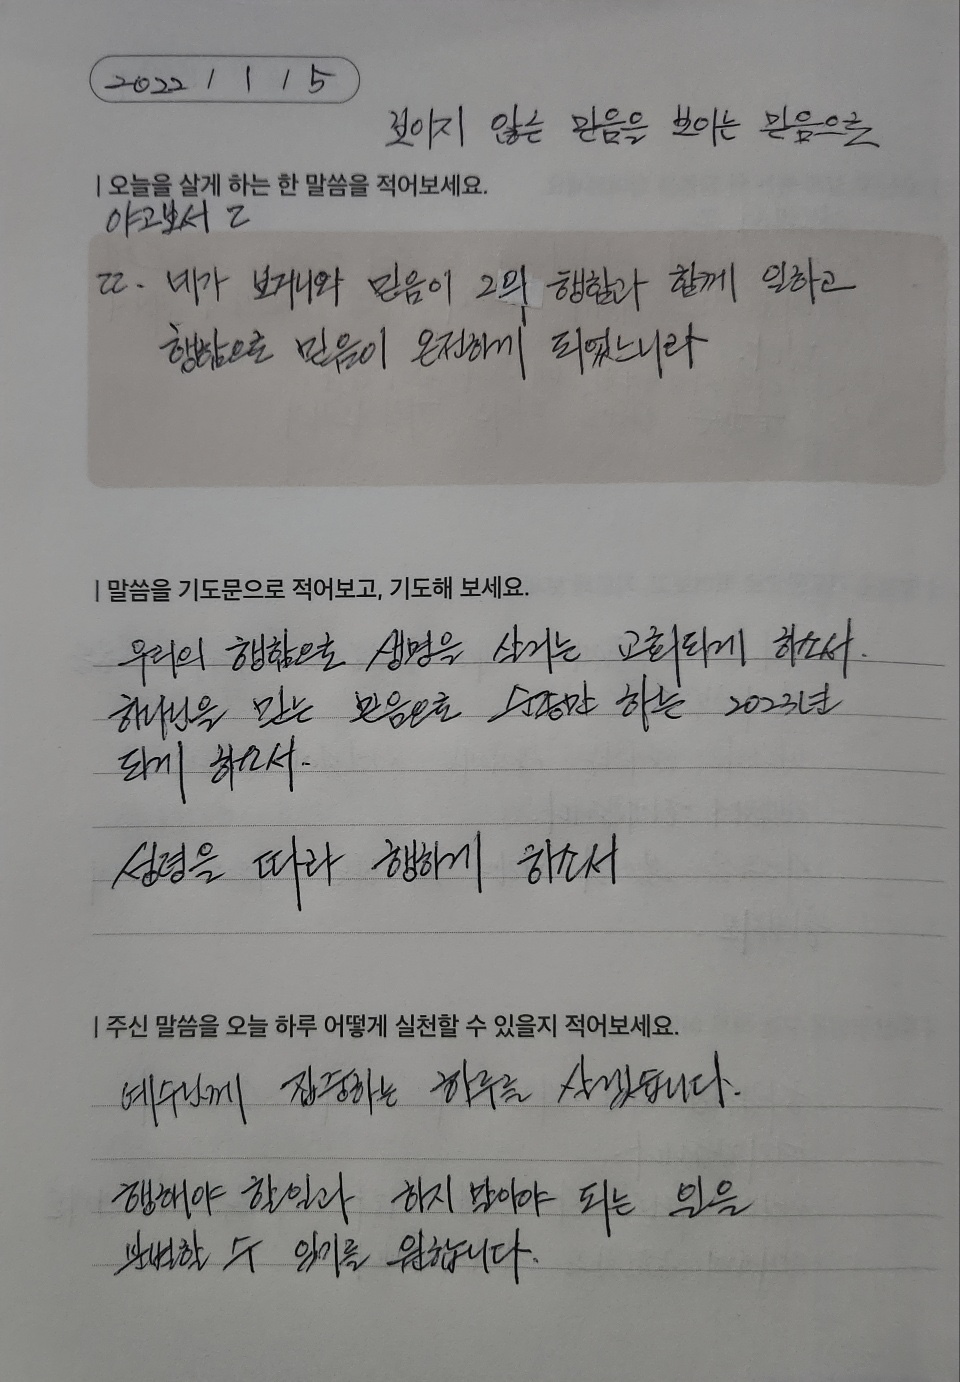 2022 / 1 / 5
보이지 않는 믿음을 보이는 믿음으로
| 오늘을 살게 하는 한 말씀을 적어보세요.
야고보서 2
22. 네가 보거니와 믿음이 그의 행함과 함께 일하고
행함으로 믿음이 온전하게 되었느니라
| 말씀을 기도문으로 적어보고, 기도해 보세요.
우리의 행함으로 생명을 살리는 교회되게 하소서.
하나님을 믿는 믿음으로 순종만 하는 2023년
되게 하소서.
성령을 따라 행하게 하소서
| 주신 말씀을 오늘 하루 어떻게 실천할 수 있을지 적어보세요.
예수님께 집중하는 하루를 살겠습니다.
행해야 할일과 하지 말아야 되는 일을
분별할 수 있기를 원합니다.